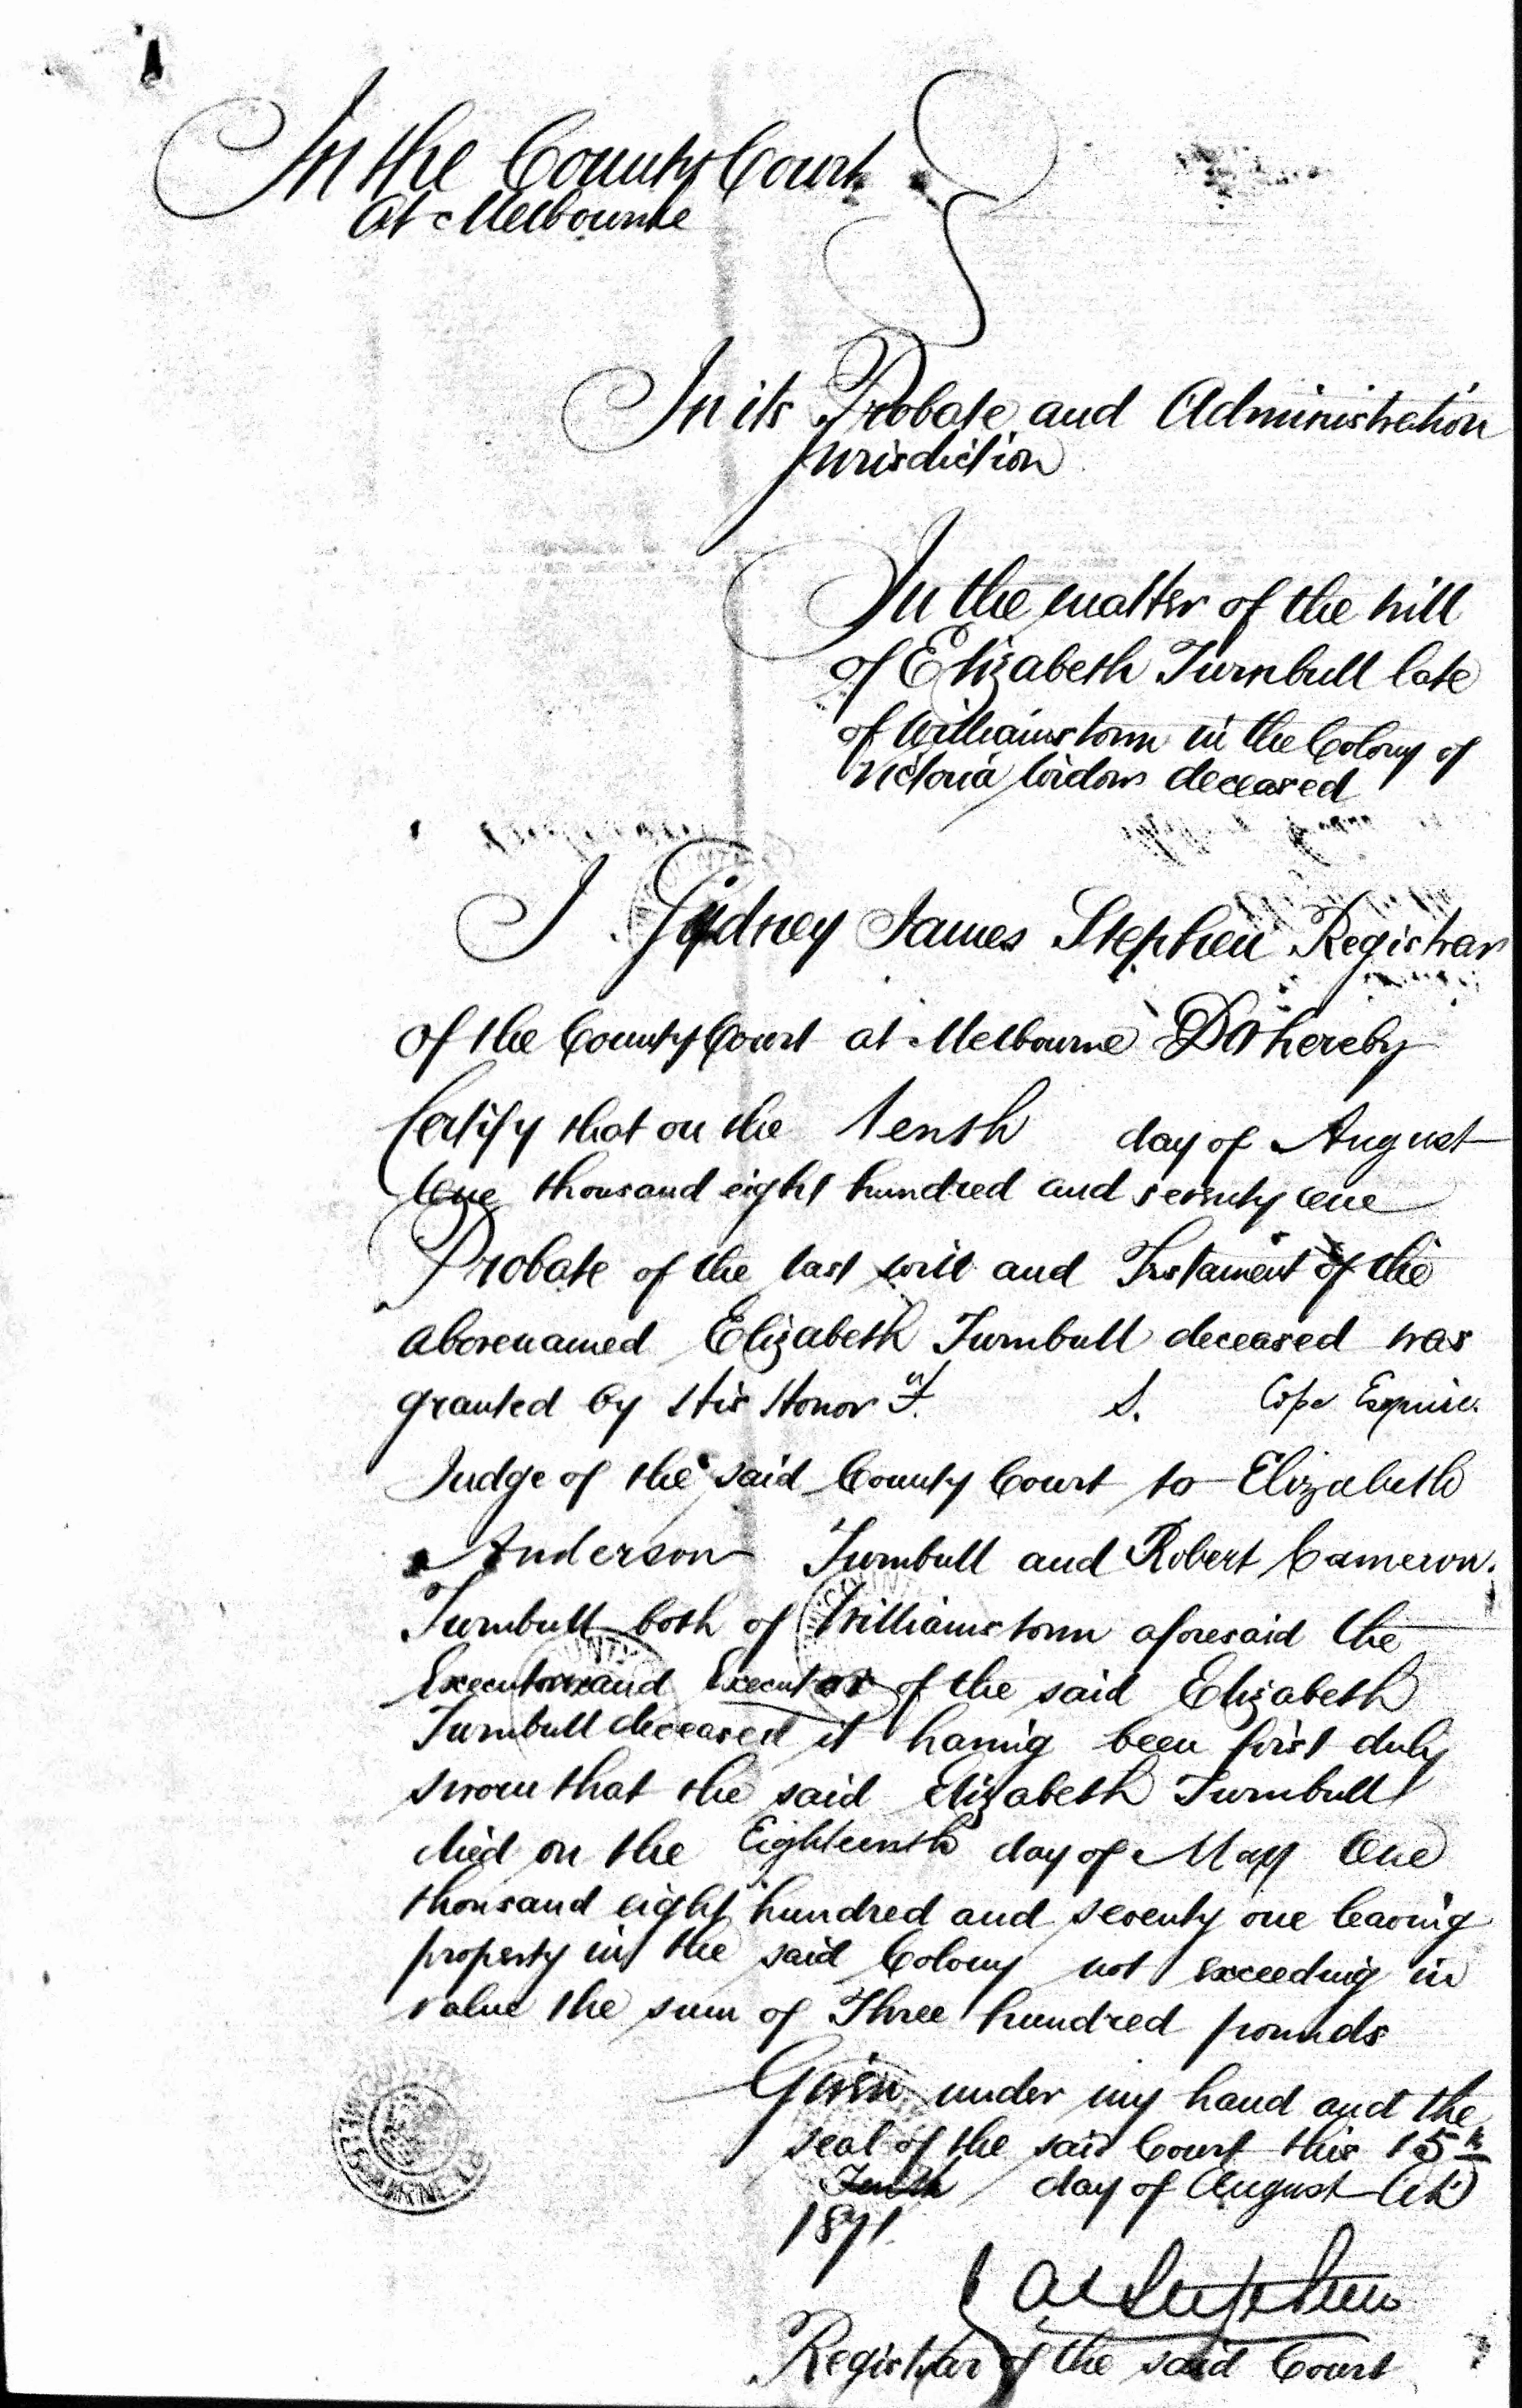 In the County Court
at Melbourne
In its Probate and Administration
Jurisdiction
In the matter of the Will
of Elizabeth Turnbull late
of Williamstown in the Colony of
Victoria Widow deceased
I Sydney James Stephen Registrar
of the County Court at Melbourne Do hereby
Certify that on the Tenth day of August
One thousand eight hundred and seventy one
Probate of the last will and Testament of the
abovenamed Elizabeth Turnbull deceased was
granted by His Honor T. S. Cope Esquire.
Judge of the said County Court to Elizabeth
Anderson Turnbull and Robert Cameron.
Turnbull both of Williamstown aforesaid the
and Executor of the said Elizabeth
Turnbull deceased it having been first duly
sworn that the said Elizabeth Turnbull
died on the Eighteenth day of May One
thousand eight hundred and seventy one leaving
property in the said Colony not exceeding in
value the sum of Three hundred pounds
Given under my hand and the
seal of the said Court this 15th
Tenth day of August
1871.
Registrar of the said Court